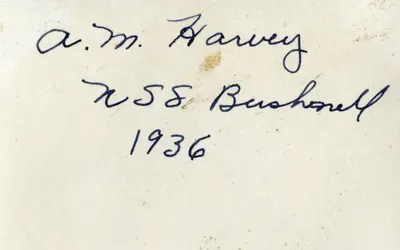 A. M. Harvey
USS Bushnell
1936